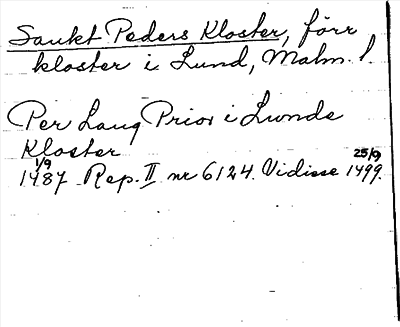 Sankt Peders Kloster, förr
kloster i Lund, Malm. l.
Per Laug Prior i Lunds
Kloster
1/9 25/9
1487 Rep. II nr 6124. Vidisse 1499.